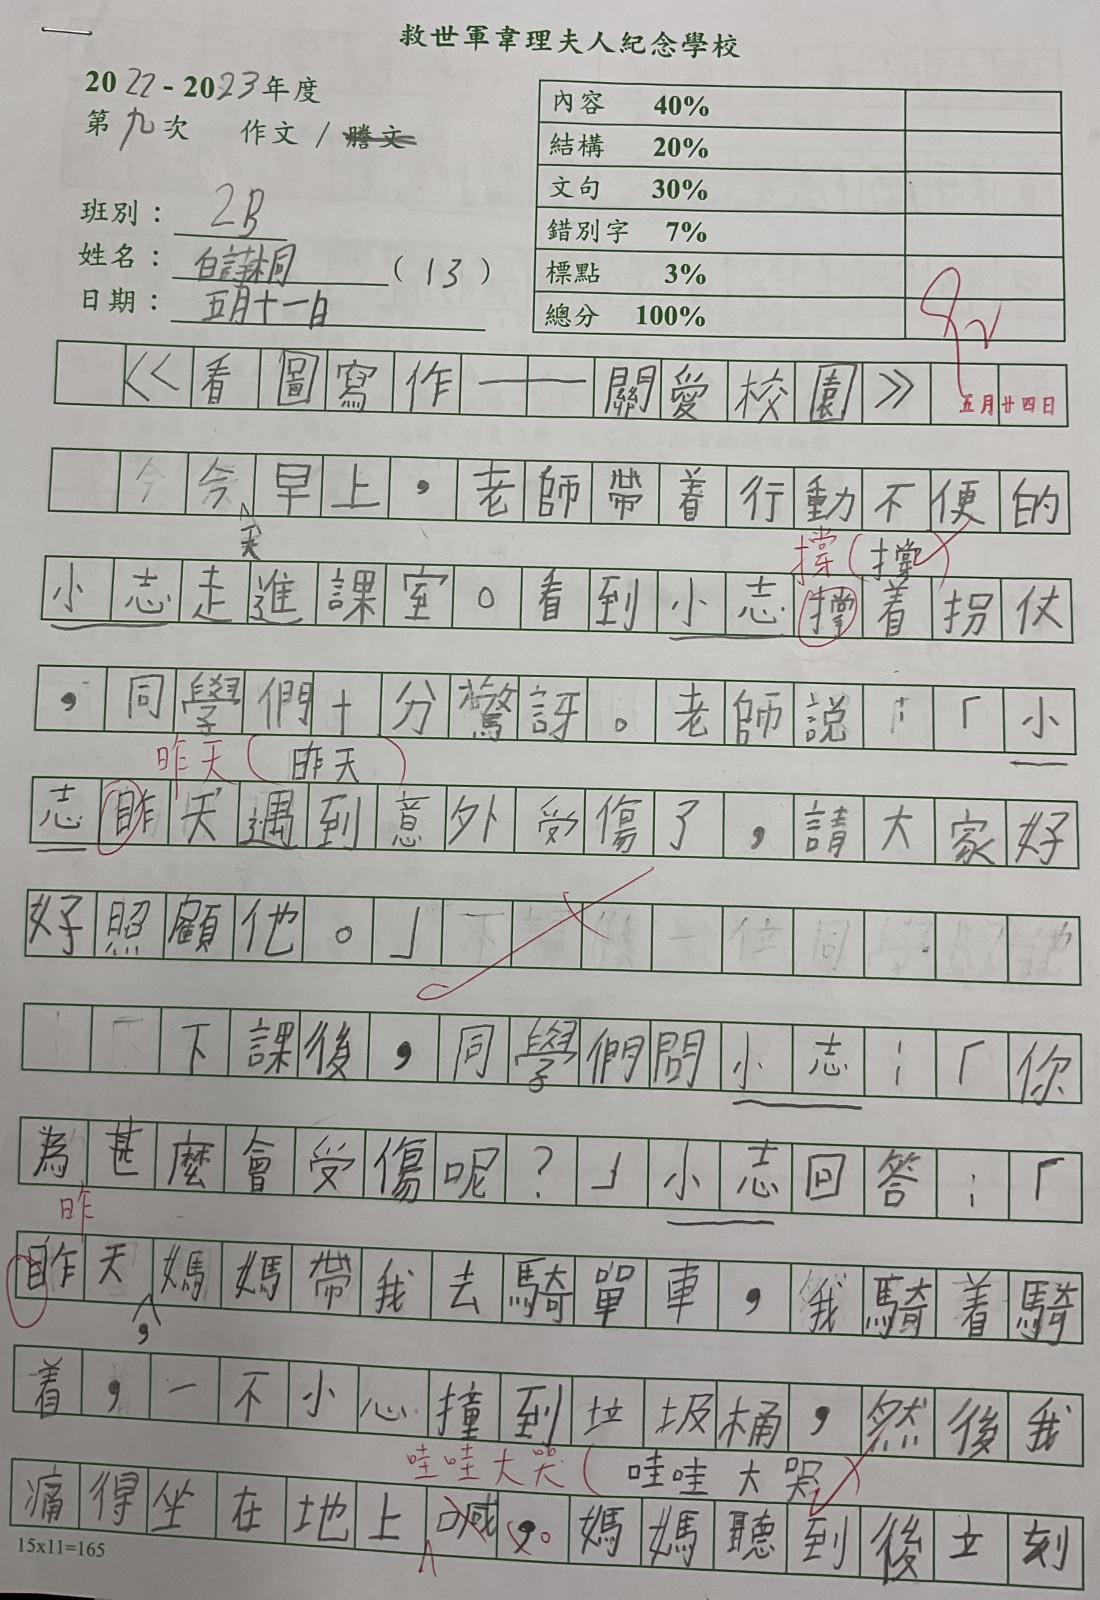 救世軍韋理夫人紀念學校
2022-2023年度
第九次 作文/謄文
內容 40%
結構 20%
文句 30%
錯別字 7%
標點 3%
總分 100%
班別：2B
姓名：白詩桐（13）
日期：五月十一日
《看圖寫作——關愛校園》
五月廿四日
今早上，老師帶着行動不便的
天
撐（撐）
小志走進課室。看到小志撐着拐杖
，同學們十分驚訝。老師説：「小
昨天（昨天）
志昨天遇到意外受傷了，請大家好
好照顧他。」
下課後，同學們問小志：「你
為甚麼會受傷呢？」小志回答：「
昨
昨天媽媽帶我去騎單車，我騎着騎
，
着，一不小心撞到垃圾桶，然後我
哇哇大哭（哇哇大哭）
痛得坐在地上喊，。媽媽聽到後立刻
15x11=165